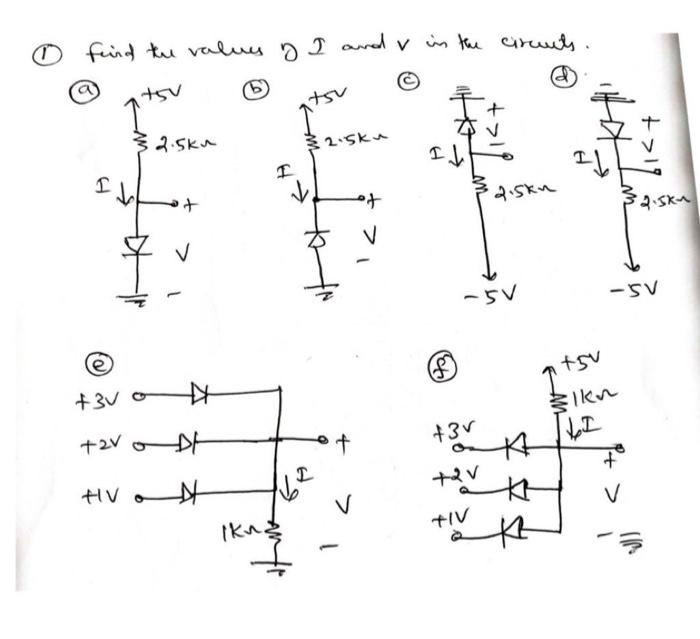 ① find the values of I and V in the circuits.
ⓐ +5V ⓑ +5V ⓒ ⓓ
2.5KΩ 2.5KΩ + V - + V -
I I I I
+ + 2.5KΩ 2.5KΩ
V V
- - -5V -5V
ⓔ ⓕ +5V
+3V 1KΩ
+2V + +3V I
+1V I +2V +
V +1V V
1KΩ - -